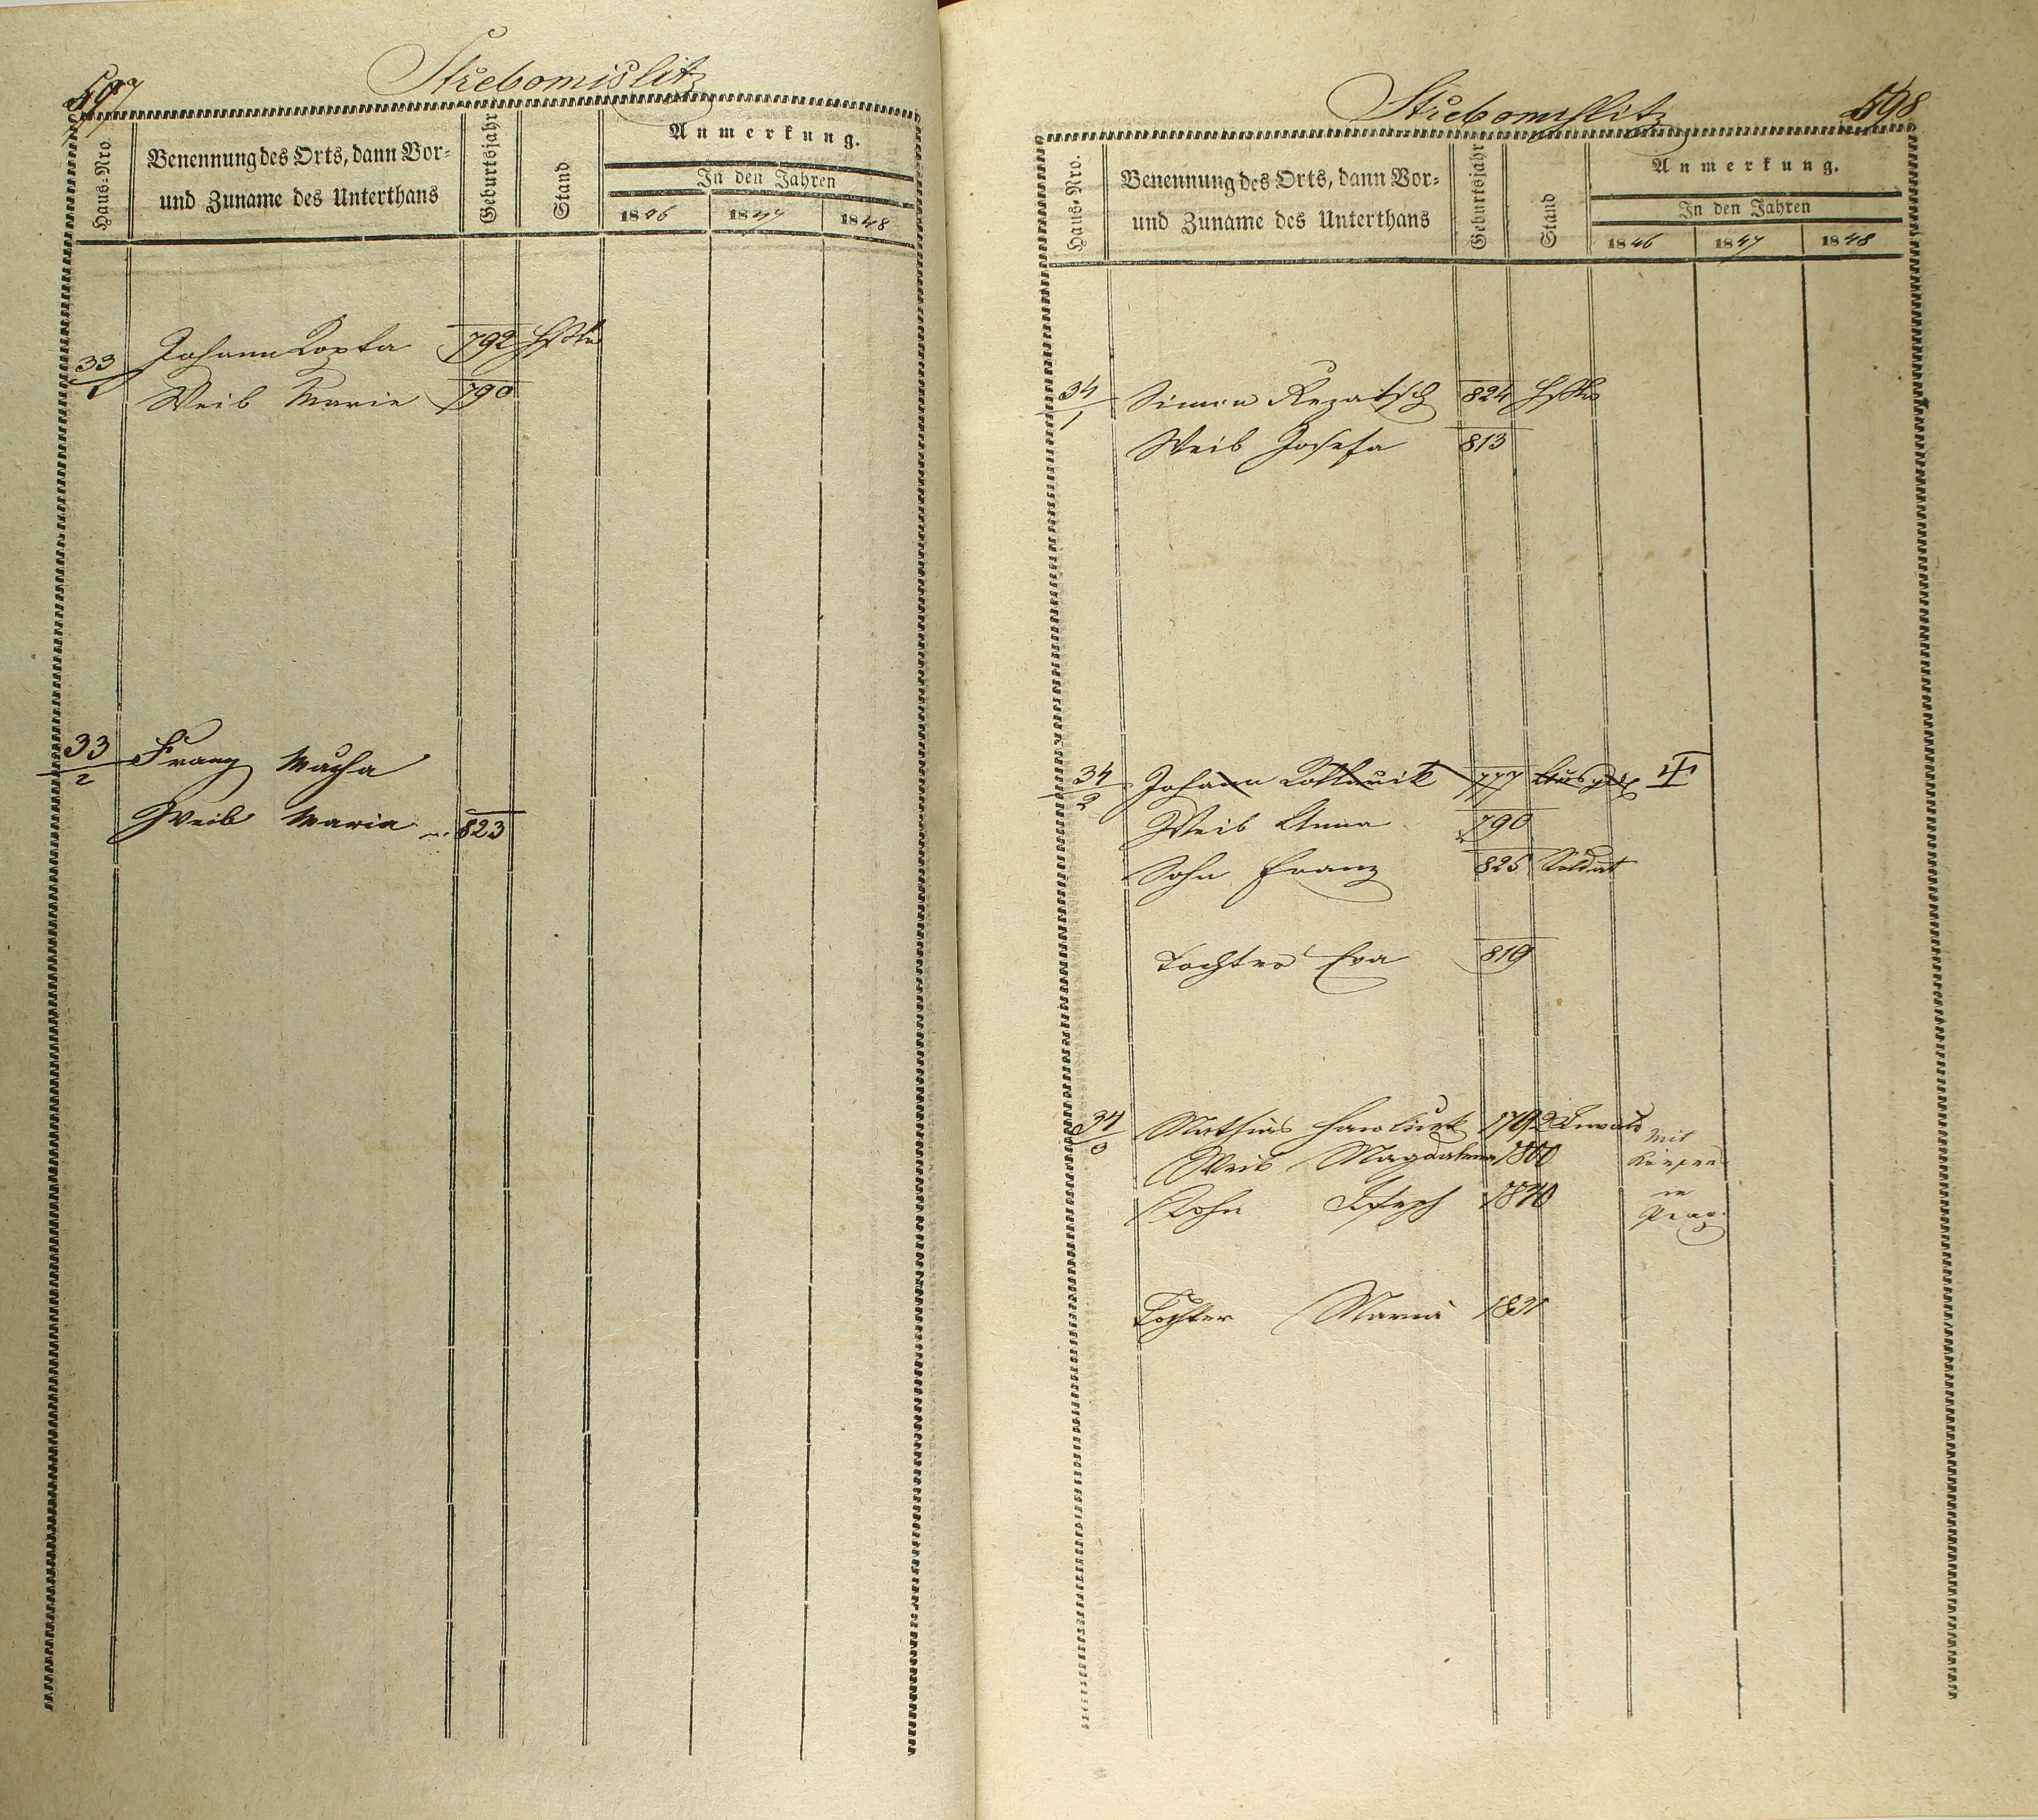 597
Střebomislitz
Haus-Nro.
Benennung des Orts, dann Vor-
und Zuname des Unterthans
Geburtsjahr
Stand
Anmerkung.
In den Jahren
1846 1847 1848
33/1 Johann Kopta 792
Weib Marie 790
33/2 Franz Mácha
Weib Maria 823
598
Střebomislitz
Haus-Nro.
Benennung des Orts, dann Vor-
und Zuname des Unterthans
Geburtsjahr
Stand
Anmerkung.
In den Jahren
1846 1847 1848
34/1 Simon Rezatsch 824
Weib Josefa 813
34/2 Johann 777
Weib Anna 790
Sohn Franz 825 Soldat
Tochter Eva 819
34/3 Mathias Hawlicek 1792
Weib Magdalena 1800
Mit
Sohn Joseph 1840
in
Prag
Tochter Maria 1831